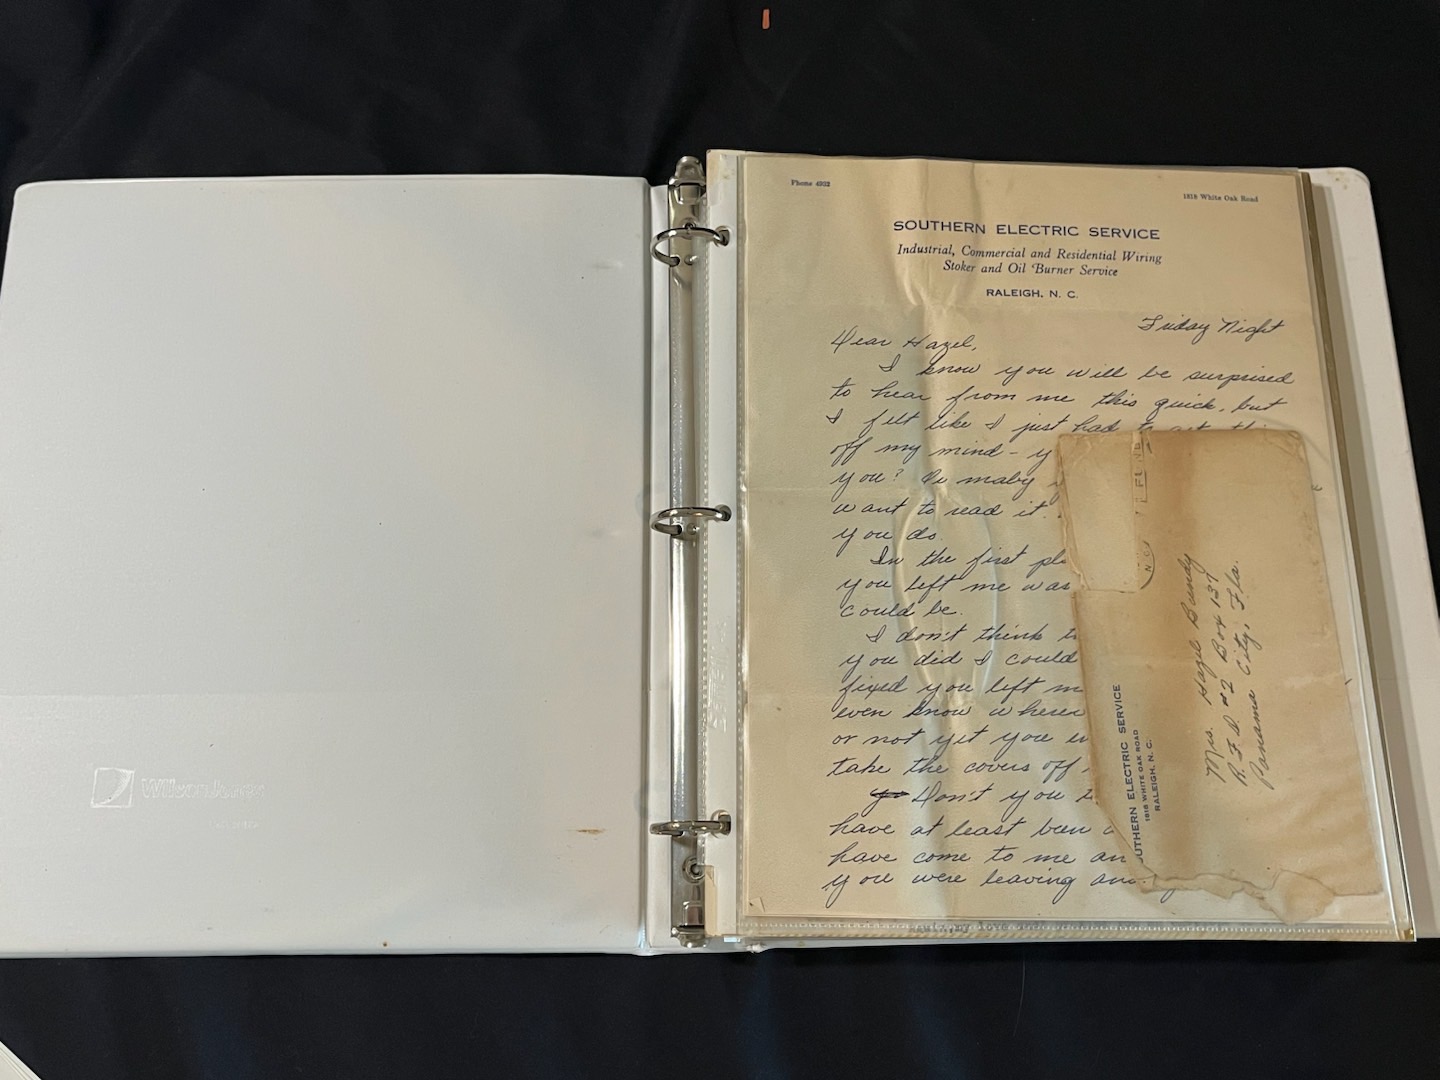 Phone 4932
1818 White Oak Road
SOUTHERN ELECTRIC SERVICE
Industrial, Commercial and Residential Wiring
Stoker and Oil Burner Service
RALEIGH, N. C.
Friday Night
Dear Hazel,
I know you will be surprised
to hear from me this quick, but
I felt like I just had to get this
off my mind - y
you? Or maby
want to read it.
you do.
In the first pl
you left me was
could be.
I don't think t
you did I could
fixed you left m
even know where
or not yet you
take the covers off
Don't you t
have at least been
have come to me an
you were leaving
N.C.
Mrs. Hazel Bundy
R.F.D. #2 Box 137
Panama City, Fla.
OUTHERN ELECTRIC SERVICE
1818 WHITE OAK ROAD
RALEIGH, N. C.
my love
WilsonJones